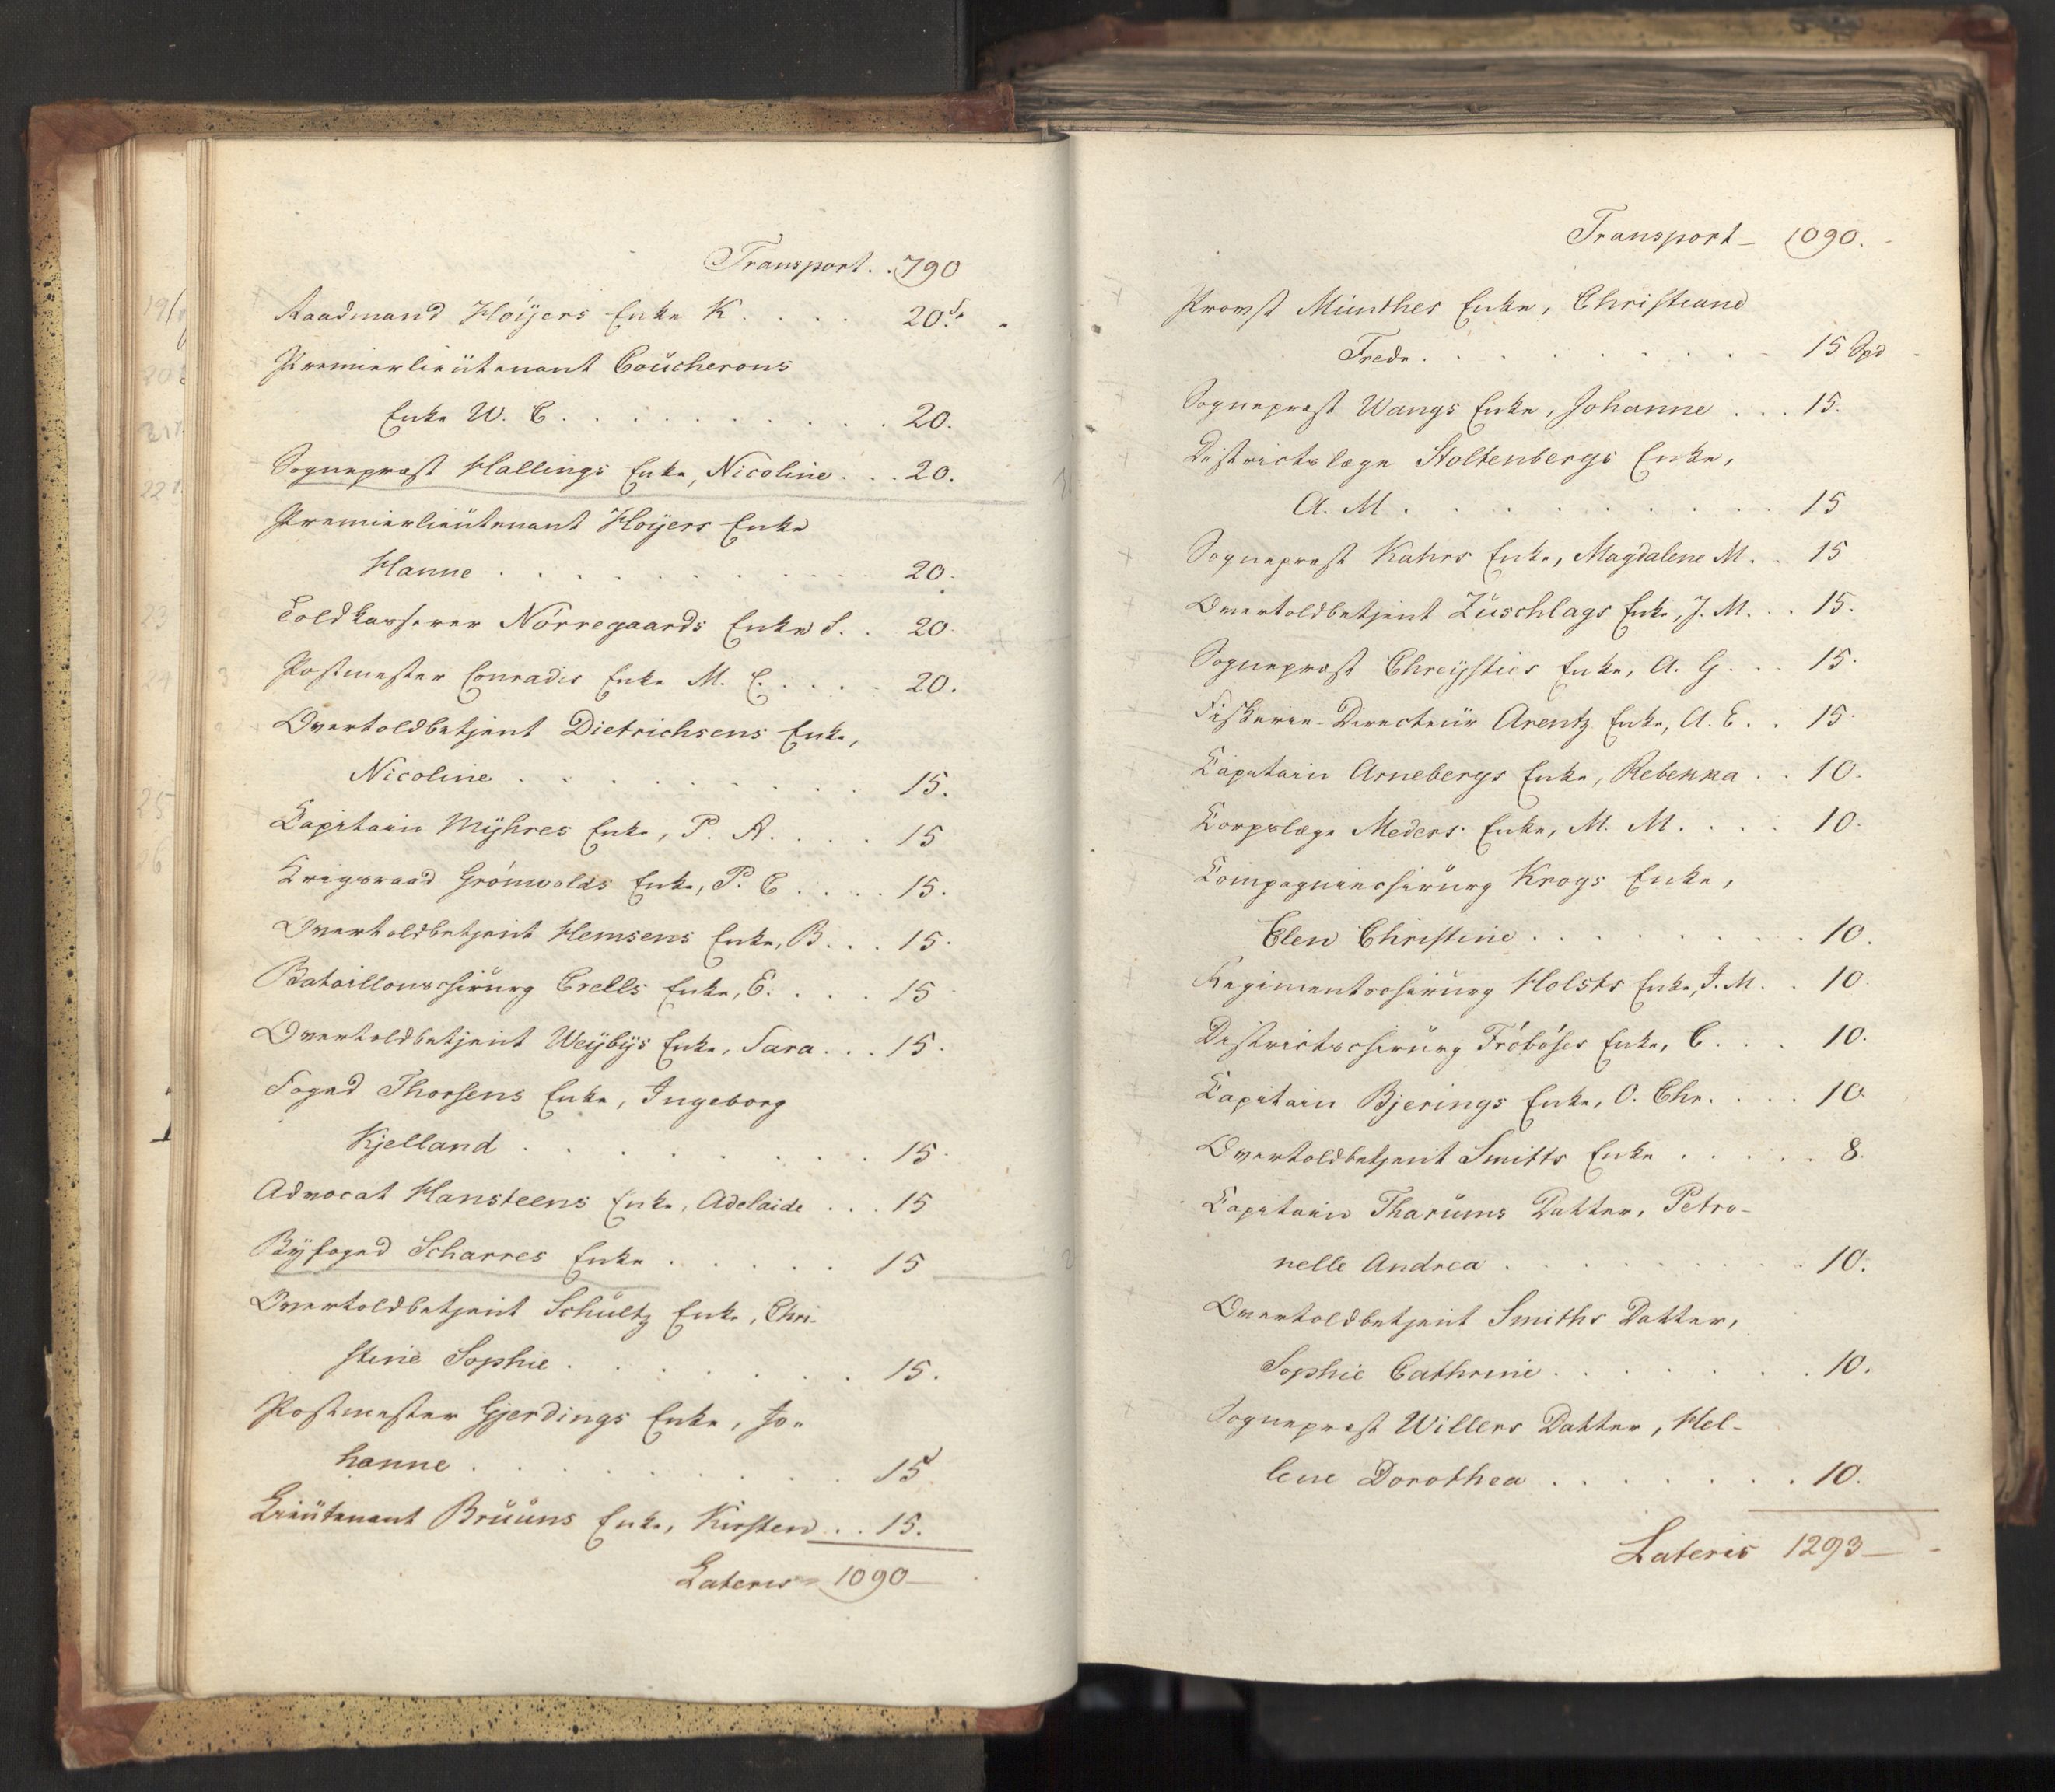 Transport . . 790
Raadmand Höÿers Enke K. . . . . 20.
Premierlieutenant Coucherons
Enke W. C. . . . . . . . . . . 20.
Sognepræst Hallings Enke, Nicoline . . . 20.
Premierlieutenant Hoÿers Enke
Hanne . . . . . . . . . . 20.
Toldkasserer Nörregaards Enke S. . 20.
Postmester Conradis Enke M. C. . . . . 20.
Overtoldbetjent Dietrichsens Enke,
Nicoline . . . . . . . . . 15.
Capitain Mÿhres Enke, P. A. . . . . 15
Krigsraad Grönwolds Enke, P. C . . . . 15.
Overtoldbetjent Hemsens Enke, B . . . 15.
Bataillonschirurg Crells Enke, E. . . . . 15
Overtoldbetjent Weÿbÿs Enke, Sara . . . 15.
Foged Thorsens Enke, Ingeborg
Kjelland . . . . . . . . . 15.
Advocat Hansteens Enke, Adelaide . . . 15
Bÿfoged Scharres Enke . . . . . . 15
Overtoldbetjent Schultz Enke, Chri-
stine Sophie . . . . . . . 15.
Postmester Gjerdings Enke, Jo-
hanne . . . . . . . . 15
Lieutenant Bruuns Enke, Kirsten . . 15.
Lateris 1090
Transport 1090.
Provst Münthes Enke, Christiane
Fredr. . . . . . . . . . 15 Spd
Sognepræst Wangs Enke, Johanne . . . 15.
Districtslæge Stoltenbergs Enke,
A. M . . . . . . . . . . . 15
Sognepræst Kahrs Enke, Magdalene M. . . 15
Overtoldbetjent Zuschlags Enke, J. M. . . 15.
Sognepræst Chreÿsties Enke, A. G . . . 15.
Fiskerie-Directeur Arentz Enke, A. E. . . 15.
Capitain Arnebergs Enke, Rebekka . . 10.
Corpslæge Meders Enke, M. M. . . . . 10.
Compagniechirurg Krogs Enke,
Elen Christine . . . . . . . . . . 10.
Regimentschirurg Holsts Enke, J. M. . . 10.
Districtschirurg Fröböses Enke, C . . . 10.
Capitain Bjerings Enke, O. Chr. . . . . 10.
Overtoldbetjent Smitts Enke . . . . . 8.
Capitain Tharums Datter, Petro-
nelle Andrea . . . . . . . . . . 10.
Overtoldbetjent Smiths Datter,
Sophie Cathrine . . . . . . . . 10.
Sognepræst Willers Datter, Hel-
lene Dorothea . . . . . . . . 10.
Lateris 1293